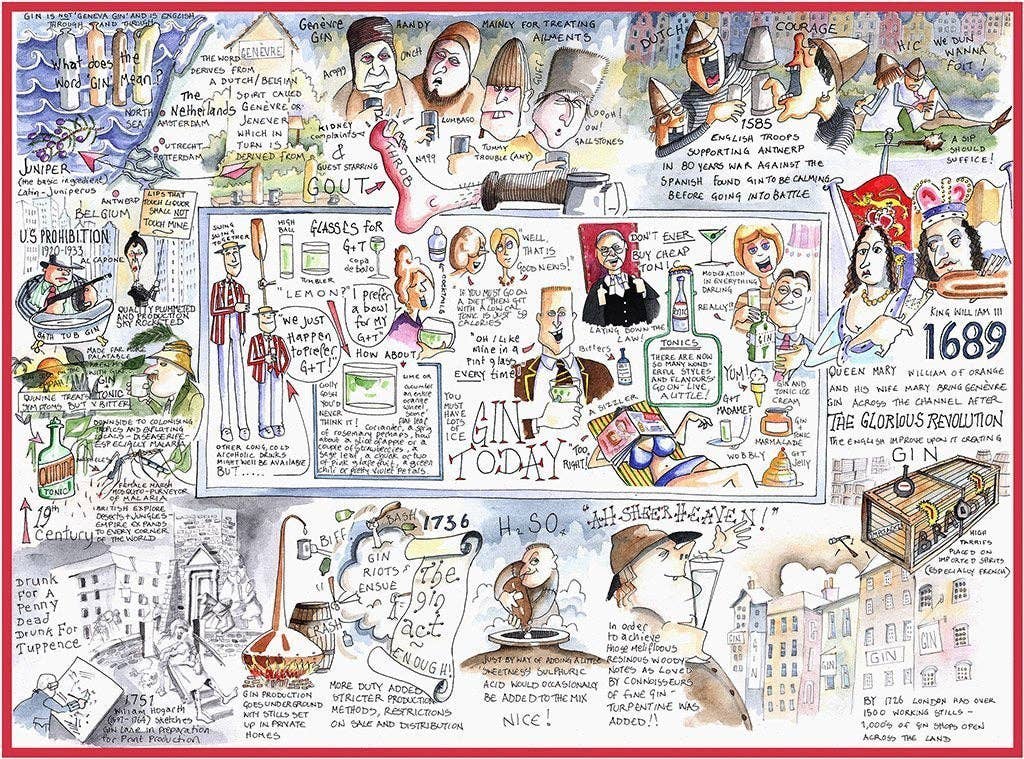 GIN IS NOT 'GENEVA GIN' AND IS ENGLISH
THROUGH AND THROUGH
What does the
Word 'GIN' Mean?
NORTH
SEA
The
Netherlands
AMSTERDAM
UTRECHT
ROTTERDAM
JUNIPER
(the basic ingredient)
Latin - Juniperus
ANTWERP
BELGIUM
GENÈVRE
THE WORD
DERIVES FROM
A DUTCH/BELGIAN
SPIRIT CALLED
GENÈVRE OR
JENEVER
WHICH IN
TURN IS
DERIVED FROM
Genèvre
GIN
HANDY
MAINLY FOR TREATING
AILMENTS
Arggg
OUCH
KIDNEY
complaints
LUMBAGO
N999
TUMMY
TROUBLE (ANY)
OOOH!
OW!
GALLSTONES
&
GUEST STARRING
GOUT
THROB
DUTCH
COURAGE
HIC
WE DUN
WANNA
FOIT!
A SIP
SHOULD
SUFFICE!
1585
ENGLISH TROOPS
SUPPORTING ANTWERP
IN 80 YEARS WAR AGAINST THE
SPANISH FOUND GIN TO BE CALMING
BEFORE GOING INTO BATTLE
LIPS THAT
TOUCH LIQUOR
SHALL NOT
TOUCH MINE
U.S PROHIBITION
1920-1933
AL CAPONE
BATH TUB GIN
QUALITY PLUMMETED
AND PRODUCTION
SKY ROCKETED
SWING
SWING
TOGETHER
HIGH
BALL
TUMBLER
GLASSES for
G+T
copa
de balo
COCKTAILS
"LEMON?"
"WE JUST
HAPPEN
TO PREFER
G+T!"
I prefer
a bowl
for MY
G+T"
HOW ABOUT
GOLLY
GOSH
YOU'D
NEVER
THINK IT!
LIME OR
CUCUMBER
AN ENTIRE
ORANGE
WHEEL,
SOME
CORIANDER, A SPRIG
OF ROSEMARY PERHAPS, HOW
ABOUT A SLICE OF APPLE OR A
COUPLE OF STRAWBERRIES, A
SAGE LEAF, A CHUNK OR TWO
OF PINK GRAPEFRUIT, A GREEN
CHILI OR PRETTY VIOLET PETALS.
OTHER LONG, COLD
ALCOHOLIC DRINKS
MIGHT WELL BE AVAILABLE
BUT.....
"WELL,
THAT IS
GOOD NEWS!"
"IF YOU MUST GO ON
A DIET THEN G+T
WITH A LOW CAL
TONIC IS JUST 59
CALORIES"
"OH I LIKE
MINE IN A
Pint glass
EVERY time"
YOU
MUST
HAVE
LOTS
OF
ICE
GIN
TODAY
DON'T EVER
BUY CHEAP
TONIC!
LAYING DOWN THE
LAW!
Bitters
TONICS
THERE ARE NOW
SO MANY WOND-
ERFUL STYLES
AND FLAVOURS
GO ON - LIVE
A LITTLE!
MODERATION
IN EVERYTHING
DARLING
REALLY!!
GIN
A SIZZLER
TOO,
RIGHT!
YUM!
G+T
MADAME?
GIN AND
TONIC ICE
CREAM
GIN
&
TONIC
MARMALADE
WOBBLY
G+T
Jelly
KING WILLIAM III
1689
QUEEN MARY
WILLIAM OF ORANGE
AND HIS WIFE MARY BRING GENÈVRE
GIN ACROSS THE CHANNEL AFTER
THE GLORIOUS REVOLUTION
THE ENGLISH IMPROVE UPON IT CREATING
GIN
BRANDY
HIGH
TARRIFS
PLACED ON
IMPORTED SPIRITS
(ESPECIALLY FRENCH)
MADE FAR MORE
PALATABLE
GIN
TONIC
QUININE TREATS
SYMPTOMS BUT V BITTER
DOWNSIDE TO COLONISING
TROPICS AND EXPLOITING
LOCALS - DISEASE RIFE -
ESPECIALLY MALARIA
TONIC
FEMALE MARSH
MOSQUITO - PURVEYOR
OF MALARIA
19th
century
BRITISH EXPLORE
DESERTS + JUNGLES -
EMPIRE EXPANDS
TO EVERY CORNER
OF THE WORLD
DRUNK
FOR A
PENNY
DEAD
DRUNK FOR
TUPPENCE
1751
William Hogarth
(1697-1764) SKETCHES
GIN LANE IN PREPARATION
for Print Production
BIFF
BASH
GIN
RIOTS
ENSUE
BASH
1736
The
gin
Act
ENOUGH!
GIN PRODUCTION
GOES UNDERGROUND
WITH STILLS SET
UP IN PRIVATE
HOMES
MORE DUTY ADDED
STRICTER PRODUCTION
METHODS, RESTRICTIONS
ON SALE AND DISTRIBUTION
H₂SO₄
JUST BY WAY OF ADDING A LITTLE
'SWEETNESS' SULPHURIC
ACID WOULD OCCASIONALLY
BE ADDED TO THE MIX
NICE!
"AH SHEER HEAVEN!"
In order
to achieve
those Mellifluous
RESINOUS WOODY
NOTES AS LOVED
BY CONNOISSEURS
OF FINE GIN -
TURPENTINE WAS
ADDED!!
GIN
GIN
GIN
GIN
GIN
BY 1726 LONDON HAS OVER
1500 WORKING STILLS -
1,000'S OF GIN SHOPS OPEN
ACROSS THE LAND